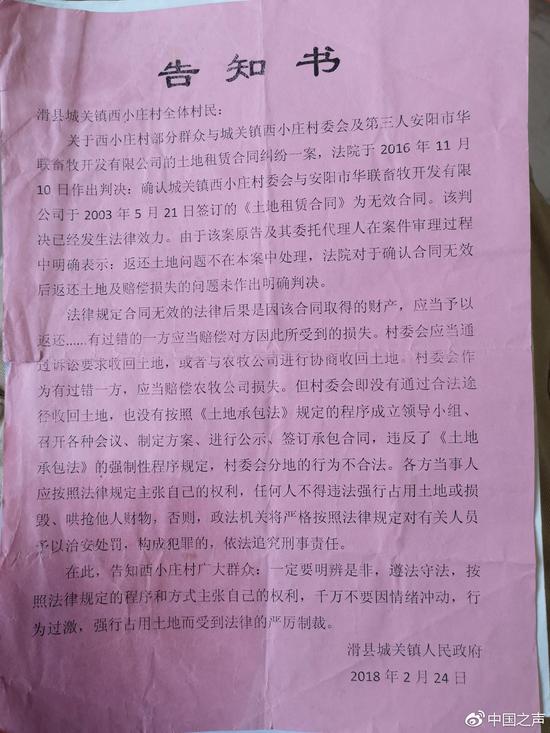 告知书
滑县城关镇西小庄村全体村民：
关于西小庄村部分群众与城关镇西小庄村委会及第三人安阳市华
联畜牧开发有限公司的土地租赁合同纠纷一案，法院于 2016 年 11 月
10 日作出判决：确认城关镇西小庄村委会与安阳市华联畜牧开发有限
公司于 2003 年 5 月 21 日签订的《土地租赁合同》为无效合同。该判
决已经发生法律效力。由于该案原告及其委托代理人在案件审理过程
中明确表示：返还土地问题不在本案中处理，法院对于确认合同无效
后返还土地及赔偿损失的问题未作出明确判决。
法律规定合同无效的法律后果是因该合同取得的财产，应当予以
返还……有过错的一方应当赔偿对方因此所受到的损失。村委会应当通
过诉讼要求收回土地，或者与农牧公司进行协商收回土地。村委会作
为有过错一方，应当赔偿农牧公司损失。但村委会即没有通过合法途
径收回土地，也没有按照《土地承包法》规定的程序成立领导小组、
召开各种会议、制定方案、进行公示、签订承包合同，违反了《土地
承包法》的强制性程序规定，村委会分地的行为不合法。各方当事人
应按照法律规定主张自己的权利，任何人不得违法强行占用土地或损
毁、哄抢他人财物，否则，政法机关将严格按照法律规定对有关人员
予以治安处罚，构成犯罪的，依法追究刑事责任。
在此，告知西小庄村广大群众：一定要明辨是非，遵法守法，按
照法律规定的程序和方式主张自己的权利，千万不要因情绪冲动，行
为过激，强行占用土地而受到法律的严厉制裁。
滑县城关镇人民政府
2018 年 2 月 24 日
中国之声